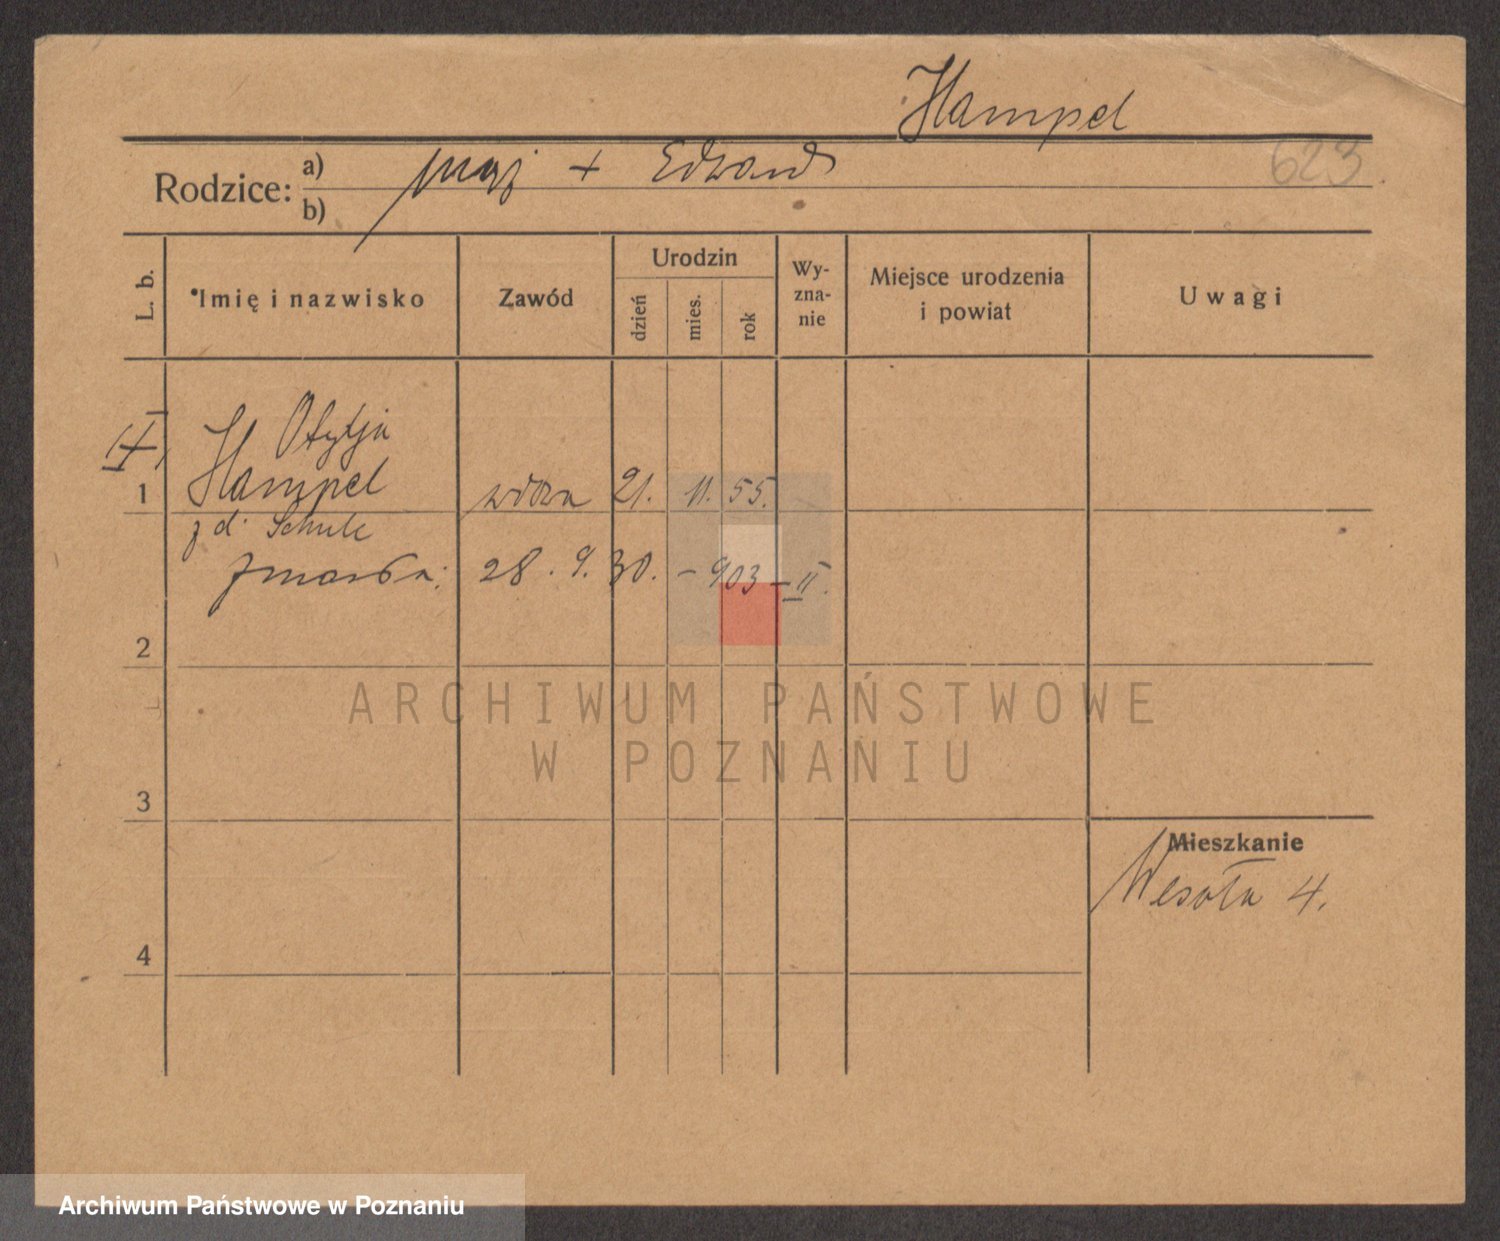 Hampel
623
Rodzice: a) mąż + Edward
b)
L. b.
Imię i nazwisko
Zawód
Urodzin
dzień
mies.
rok
Wy-
zna-
nie
Miejsce urodzenia
i powiat
Uwagi
Otylja
1 Hampel wdowa 21. 11. 55.
z d. Schulz
zmarła: 28. 9. 30. – 903 – II.
2
3
4
Mieszkanie
Wesoła 4.
ARCHIWUM PAŃSTWOWE
W POZNANIU
Archiwum Państwowe w Poznaniu